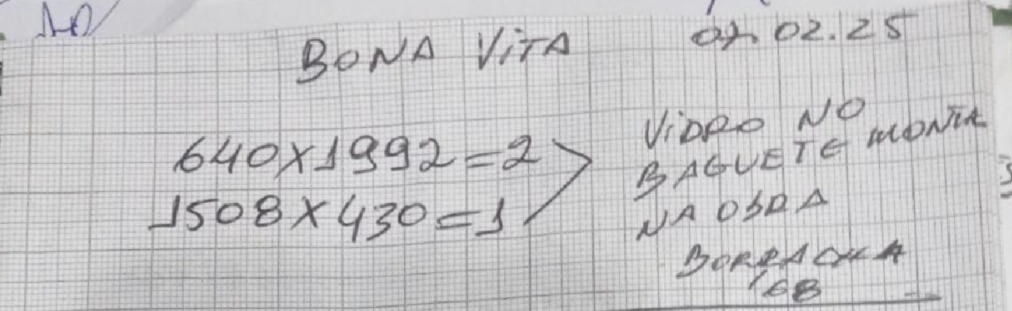 BONA VITA 07.02.25
640X1992=2
1508X430=1
VIDRO NO
BAGUETE MONTA
NA OBRA
BORRACHA
168